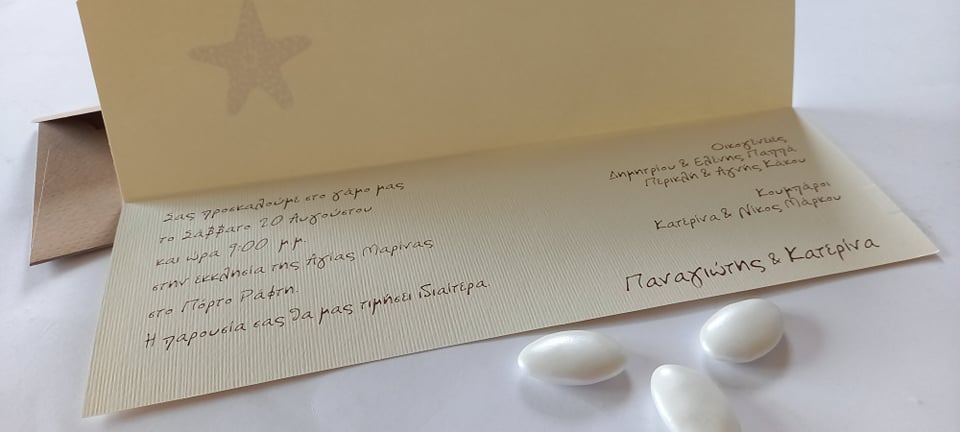 Σας προσκαλούμε στο γάμο μας
το Σάββατο 20 Αυγούστου
και ώρα 9:00 μ.μ.
στην εκκλησία της Αγίας Μαρίνας
στο Πόρτο Ράφτη.
Η παρουσία σας θα μας τιμήσει ιδιαίτερα.
Οικογένειες
Δημητρίου & Ελένης Παππά
Περικλή & Αγνής Κάκου
Κουμπάροι
Κατερίνα & Νίκος Μάρκου
Παναγιώτης & Κατερίνα